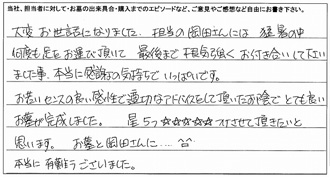 当社、担当者に対して・お墓の出来具合・購入までのエピソードなど、ご意見やご感想など自由にお書き下さい。
大変お世話になりました。担当の岡田さんには 猛暑の中
何度も足をお運び頂いて 最後まで根気強くお付き合いして下さい
ました事、本当に感謝の気持ちでいっぱいです。
お若いセンスの良い感性で適切なアドバイスをして頂いたお陰でとても良い
お墓が完成しました。 星5つ ☆☆☆☆☆ つけさせて頂きたいと
思います。 お墓と岡田さんに……
本当に有難うございました。